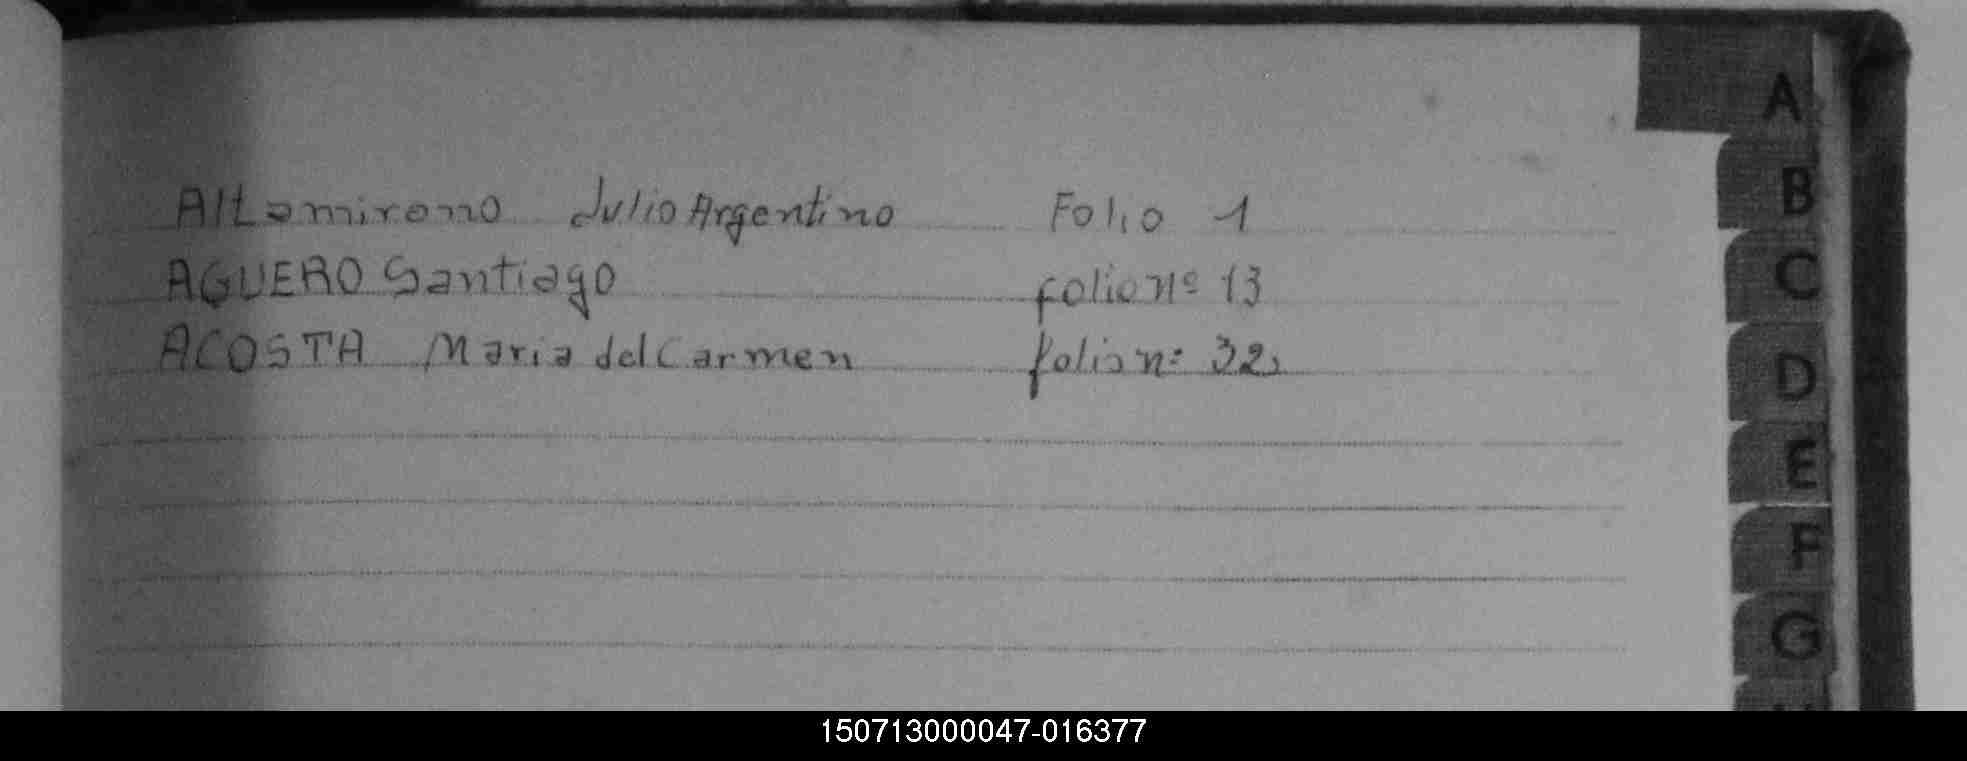 Altamirano Julio Argentino Folio 1
AGUERO Santiago folio nº 13
ACOSTA Maria del Carmen folio nº 32
A
B
C
D
E
F
G
150713000047-016377